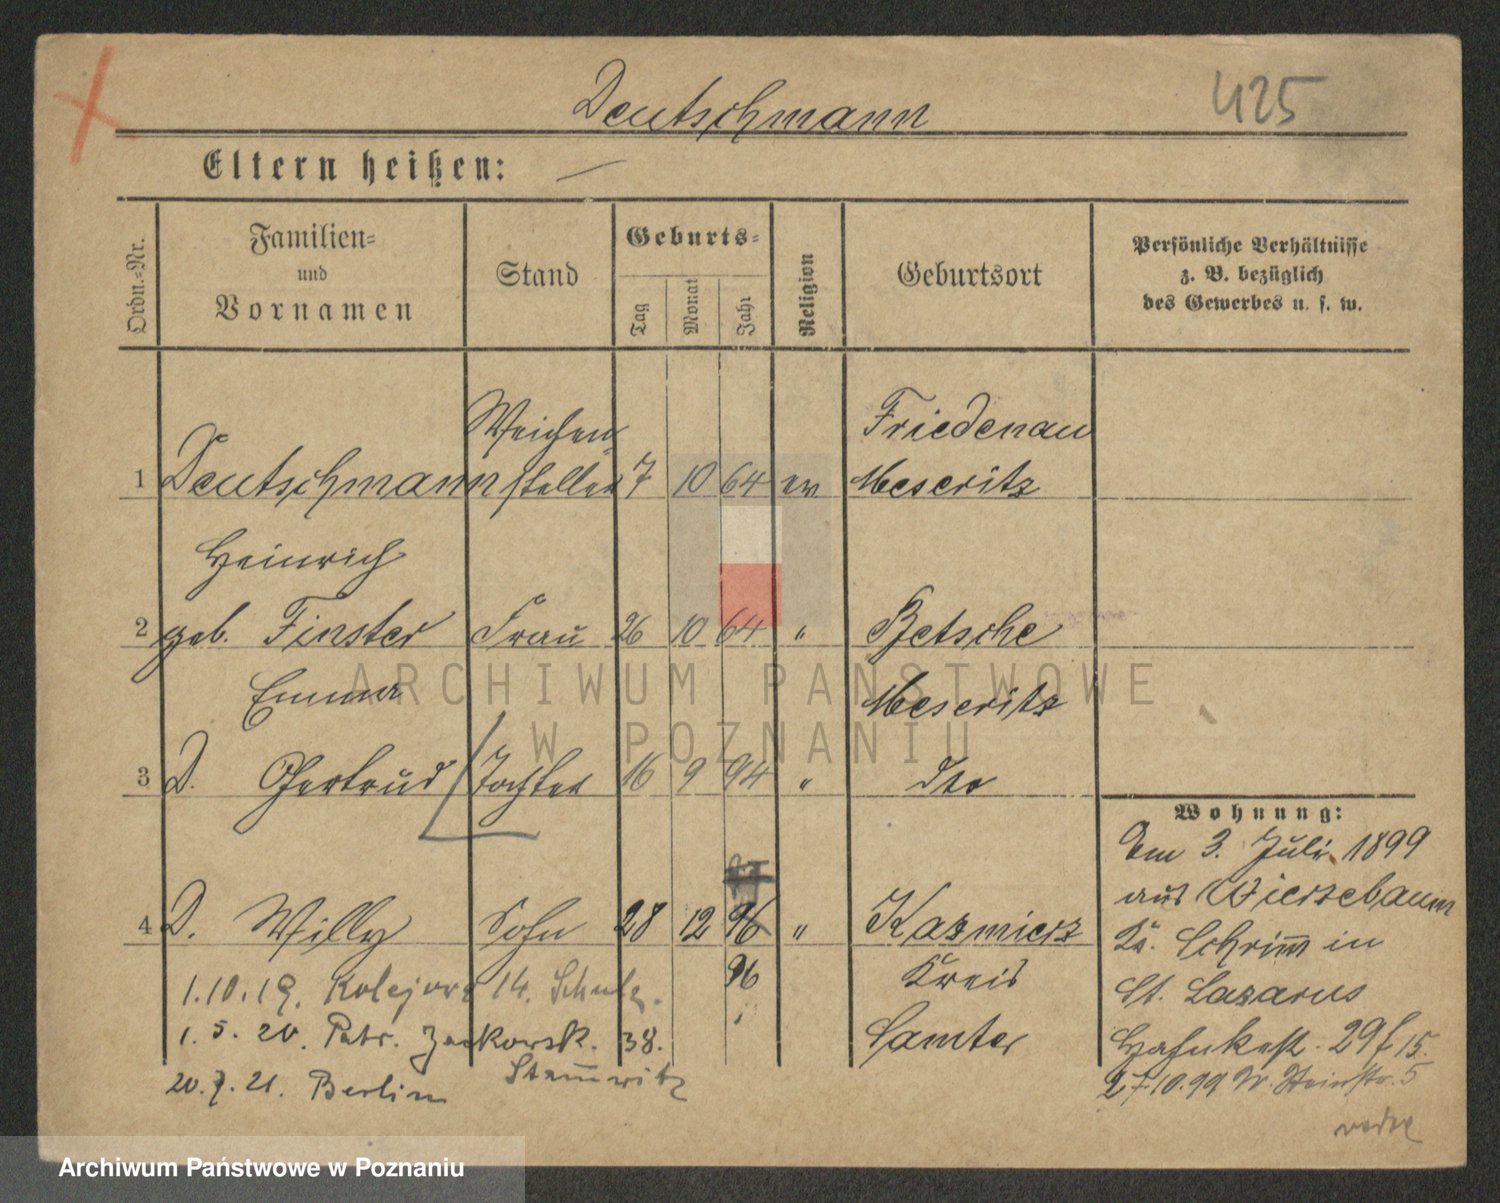 Deutschmann
425
Eltern heißen: —
Ordn.-Nr.
Familien-
und
Vornamen
Stand
Geburts-
Tag
Monat
Jahr
Religion
Geburtsort
Persönliche Verhältnisse
z. B. bezüglich
des Gewerbes u. s. w.
Weichen- Friedenau
1 Deutschmann steller 7 10 64 ev Meseritz
Heinrich
2 geb. Finster Frau 26 10 64 " Betsche
Emma Meseritz
3 D. Gertrud Tochter 16 9 94 " dto
4 D. Willy Sohn 28 12 96 " Kazmierz
96 Kreis
Samter
1.10.19. Kolejowa 14.
1.5.20. Patr. Jackowsk. 38.
20.7.21. Berlin
Wohnung:
Am 3. Juli 1899
aus Wierzebaum
Kr. Schrimm in
St. Lazarus
29
27.10.99 5
ARCHIWUM PAŃSTWOWE
W POZNANIU
Archiwum Państwowe w Poznaniu